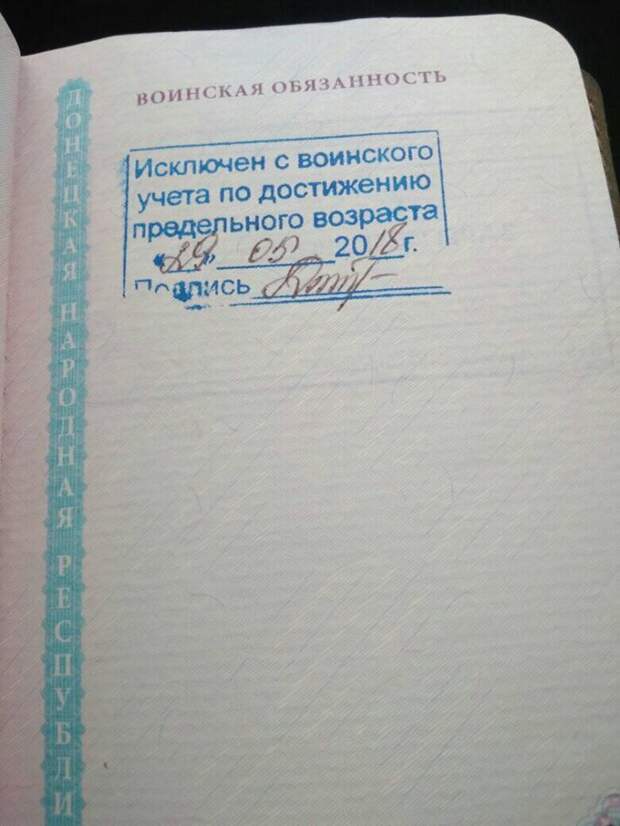 ВОИНСКАЯ ОБЯЗАННОСТЬ
Исключен с воинского
учета по достижению
предельного возраста
«29» 05 2018 г.
Подпись
ДОНЕЦКАЯ НАРОДНАЯ РЕСПУБЛИ